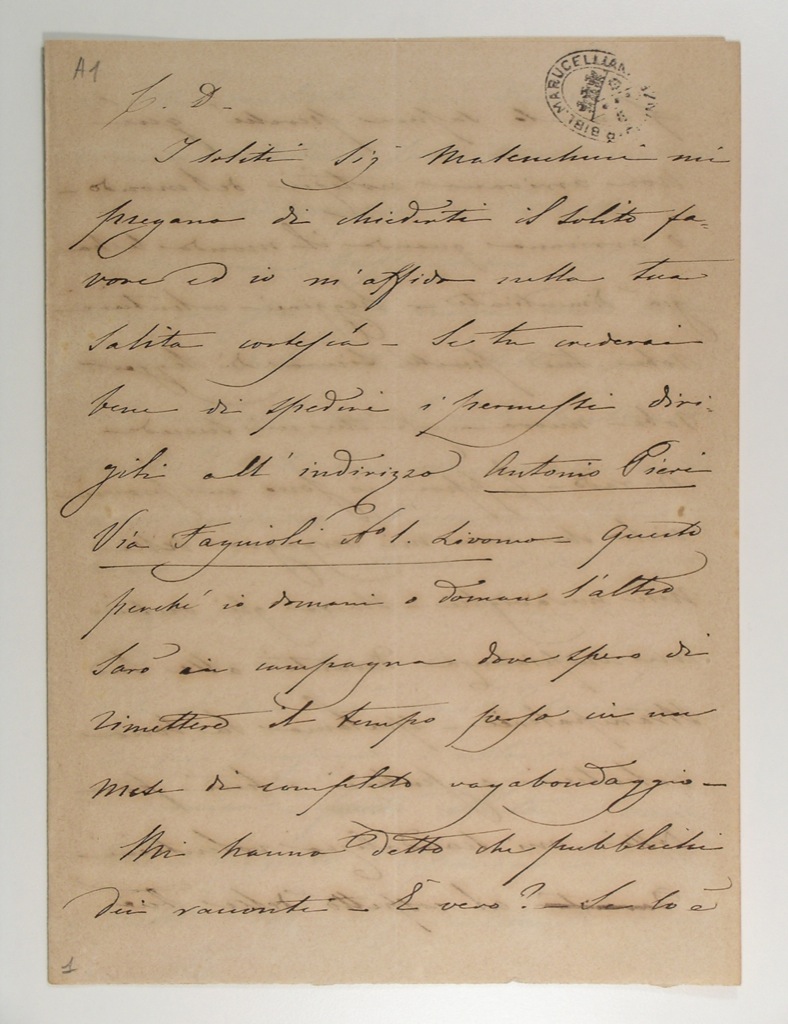 A1
BIBL. MARUCELLIANA
I soliti Sigi Malenchini mi
pregano di chiederti il solito fa-
vore ed io m'affido nella tua
solita cortesia - Se tu crederai
bene di spedire i permessi diri-
gili all' indirizzo Antonio Pieri
Via Fagiuoli No 1. Livorno - Questo
perché io domani o doman l'altro
sarò in campagna dove spero di
rimettere il tempo perso in un
mese di completo vagabondaggio -
Mi hanno detto che pubblichi
dei racconti - È vero? - Se lo è
1